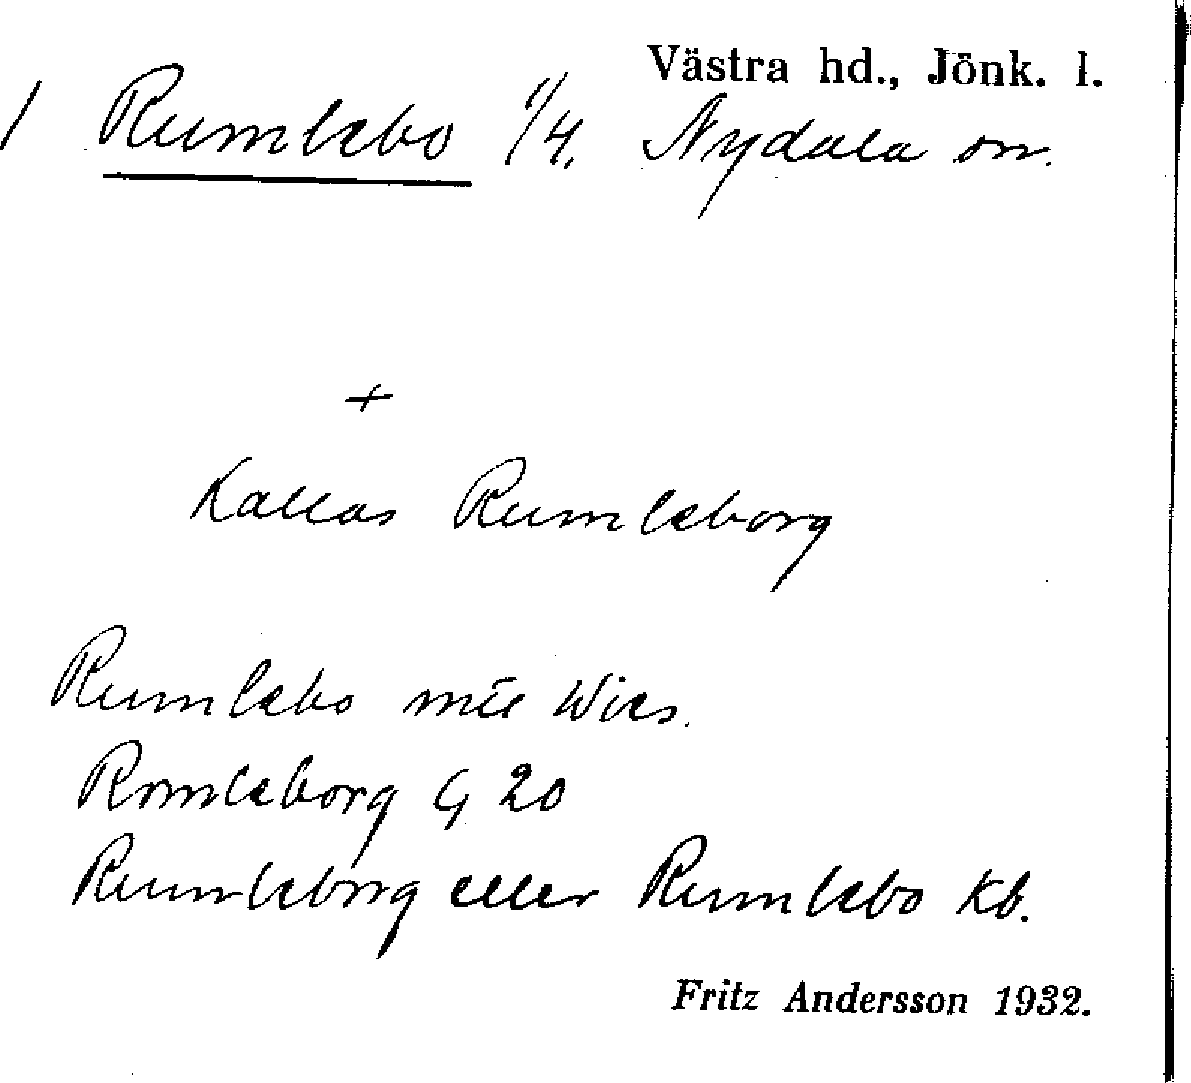 Västra hd., Jönk. l.
1 Rumlebo 1/4. Nydala sn.
+
Kallas Rumleborg
Rumlebo Wies.
Romleborg G 20
Rumleborg eller Rumlebo Kb.
Fritz Andersson 1932.